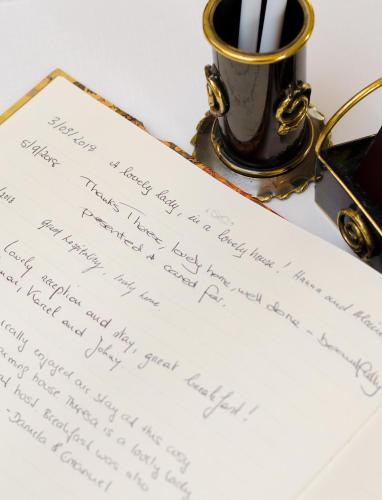 3/09/2018 A lovely lady, in a lovely house! Hanna and
5/9/2018 Thanks Therese, lovely home, well done - beautifully
presented & cared for.
2018 great hospitality, lovely home.
Lovely reception and stay, great breakfast!
Karel and Johny
really enjoyed our stay at this cosy
charming house Theresa is a lovely lady
host. Breakfast was also
- Daniela & Emanuel